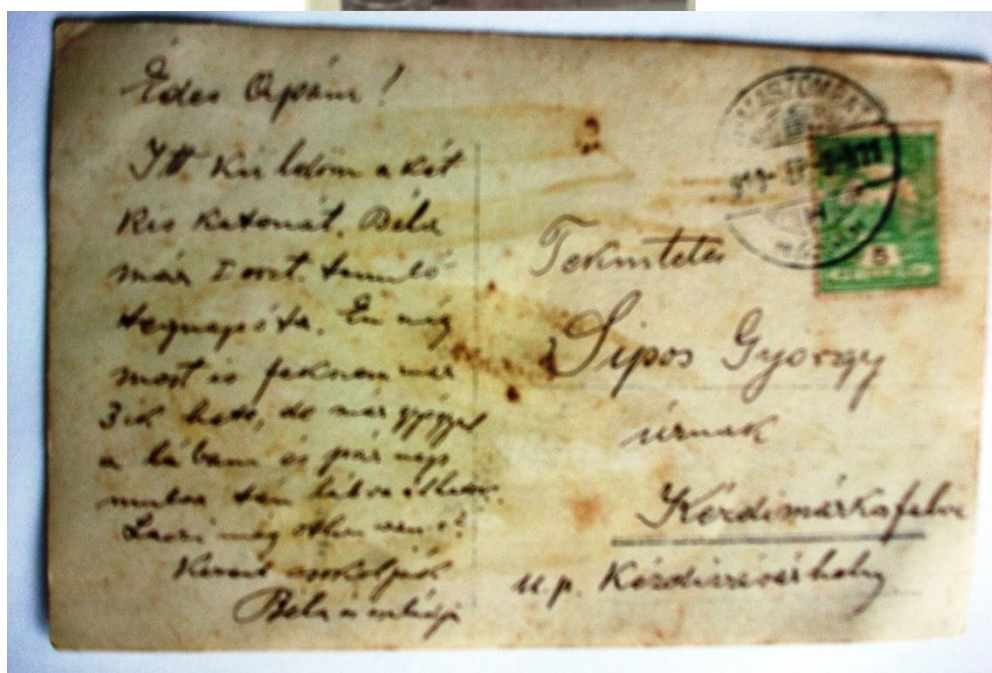 Édes Apám!
Itt küldöm a két
kis katonát. Béla
már I oszt. tanuló
tegnap óta. Én még
most is fekszem már
3ik hete, de már gyógyul
a lábam és pár nap
mulva tán lábra állhatok.
Laczi még otthon van e?
Kezeit csókolják
Béla és
RIMASZOMBAT
5
Tekintetes
Sipos György
úrnak
Kézdimárkosfalva
u.p. Kézdivásárhely